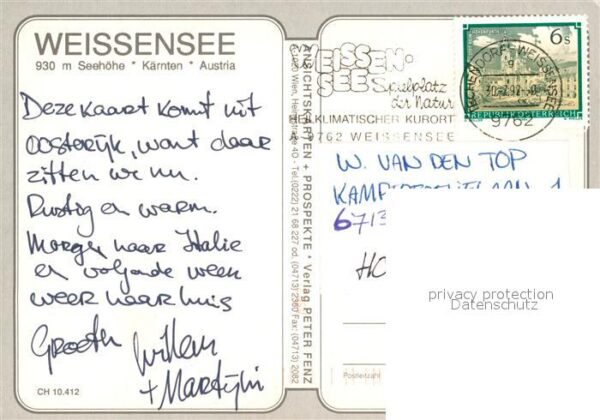 WEISSENSEE
930 m Seehöhe * Kärnten * Austria
Deze kaart komt uit
Oosterijk, want daar
zitten we nu.
Rustig en warm.
Morgen naar Italie
en volgende week
weer naar huis
Groeten Willem
+ Martijn
CH 10.412
ANSICHTSKARTEN + PROSPEKTE * Verlag PETER FENZ
Tel. (0222) 21 68 227 od. (04713) 2360 Fax: (04713) 2082
WEISSEN-
SEE Spielplatz
der Natur
HEILKLIMATISCHER KURORT
9762 WEISSENSEE
6 s
REPUBLIK ÖSTERREICH
9762
W. VAN DEN TOP
6713
HO
Postleitzahl
privacy protection
Datenschutz